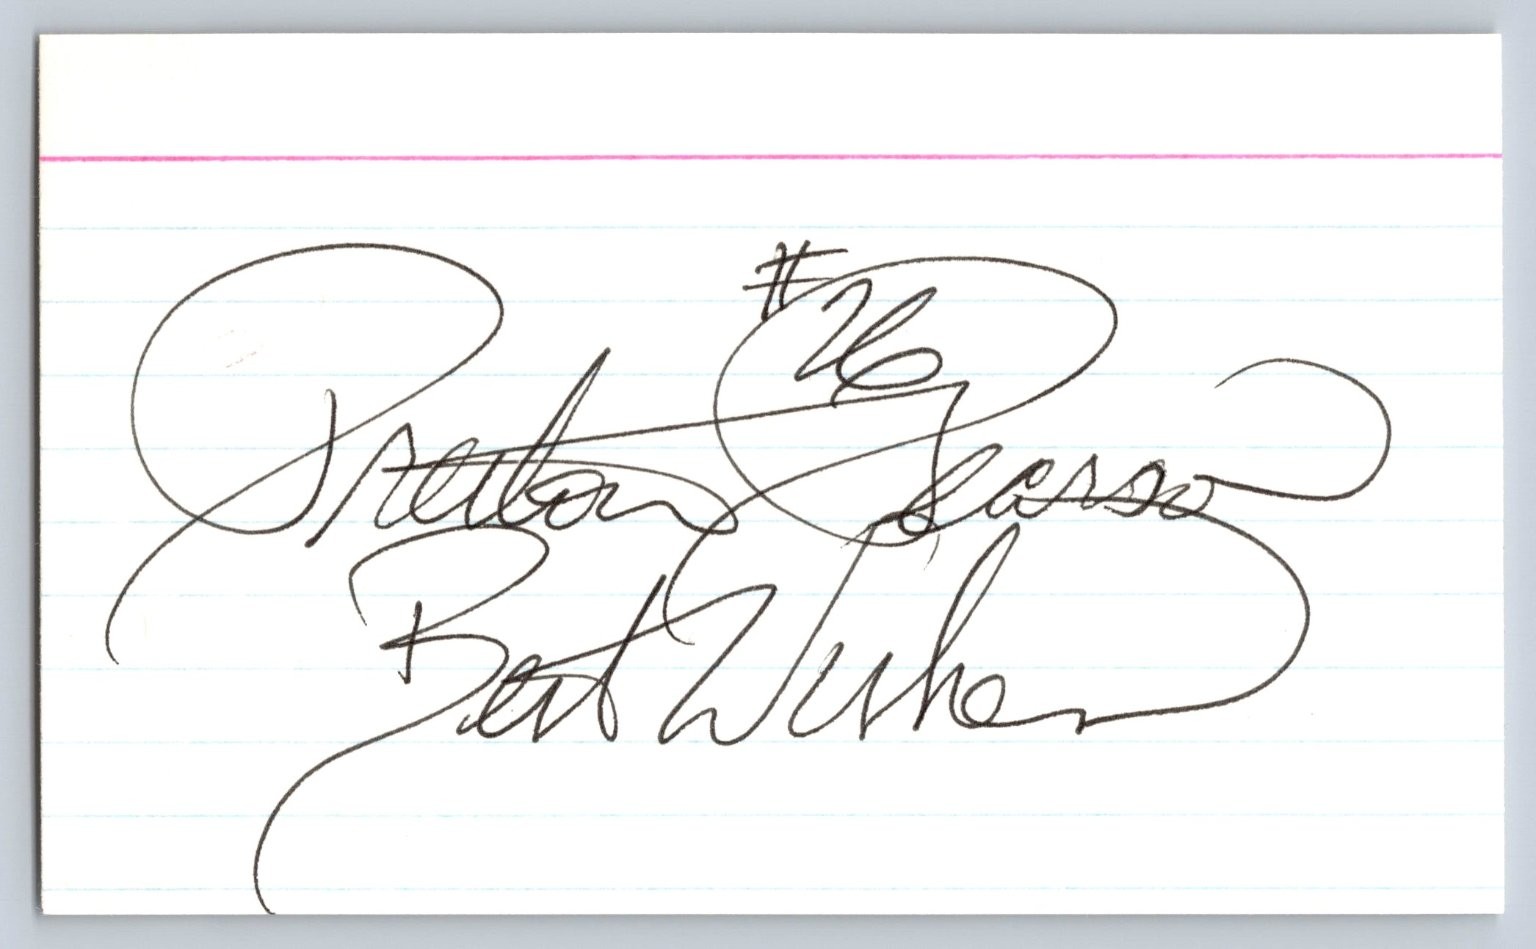 Preston Pearson
#26
Best Wishes